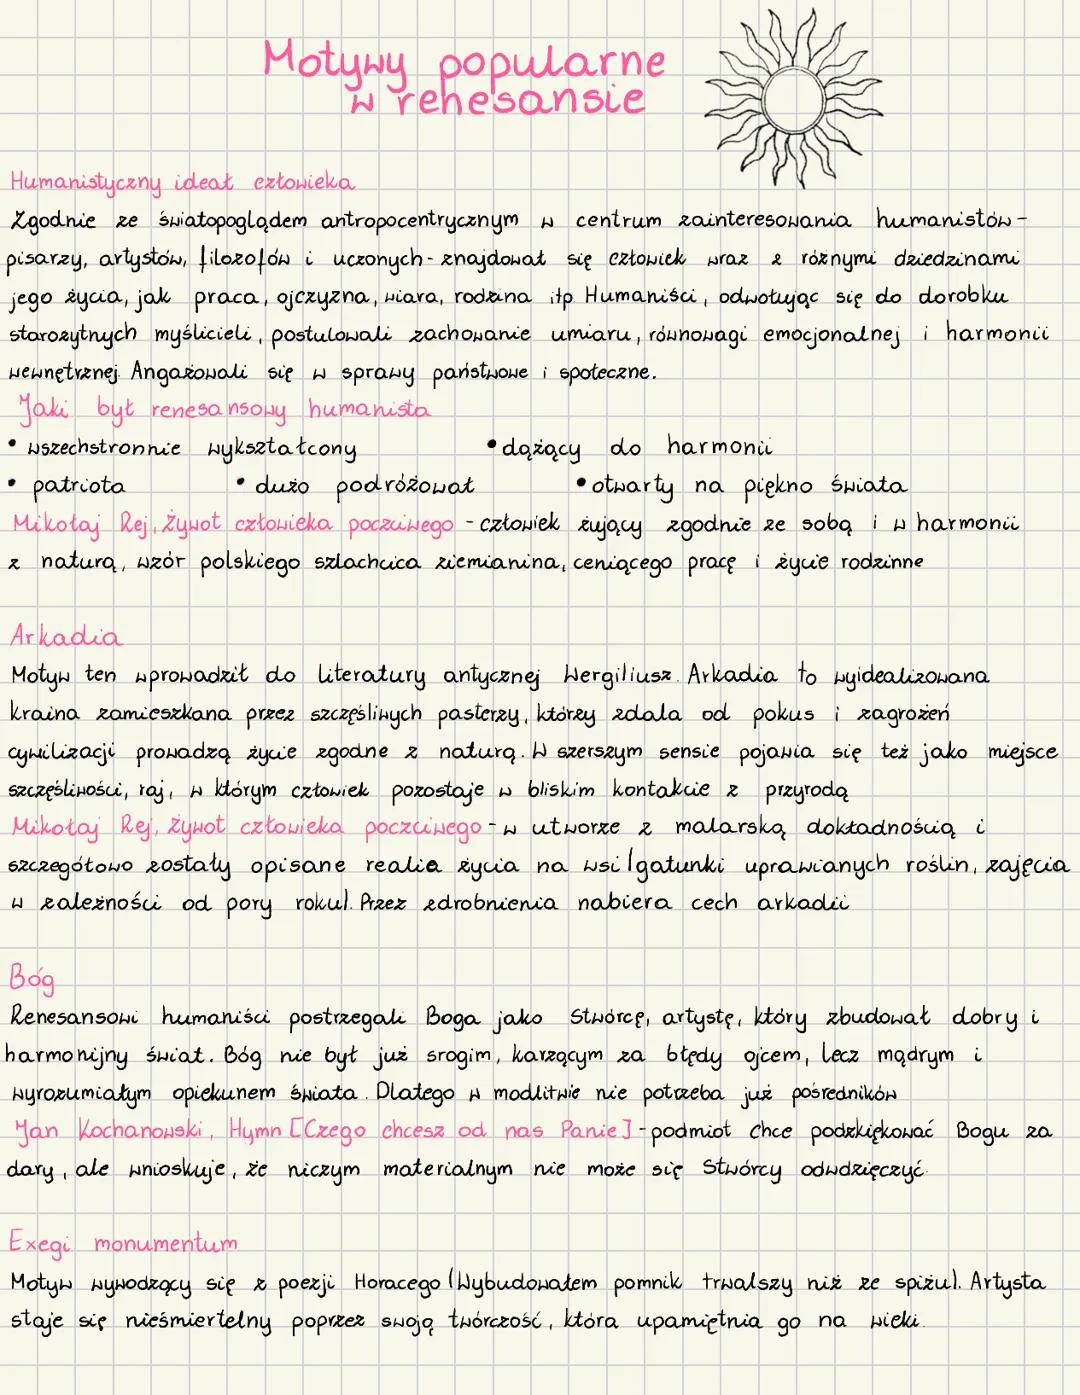 Motywy popularne
w renesansie
Humanistyczny ideał człowieka
Zgodnie ze światopoglądem antropocentrycznym w centrum zainteresowania humanistów -
pisarzy, artystów, filozofów i uczonych - znajdował się człowiek wraz z różnymi dziedzinami
jego życia, jak praca, ojczyzna, wiara, rodzina itp. Humaniści, odwołując się do dorobku
starożytnych myślicieli, postulowali zachowanie umiaru, równowagi emocjonalnej i harmonii
wewnętrznej. Angażowali się w sprawy państwowe i społeczne.
Jaki był renesansowy humanista
• wszechstronnie wykształcony • dążący do harmonii
• patriota • dużo podróżował • otwarty na piękno świata
Mikołaj Rej, Żywot człowieka poczciwego - człowiek żujący zgodnie ze sobą i w harmonii
z naturą, wzór polskiego szlachcica ziemianina, ceniącego pracę i życie rodzinne
Arkadia
Motyw ten wprowadził do literatury antycznej Wergiliusz. Arkadia to wyidealizowana
kraina zamieszkana przez szczęśliwych pasterzy, którzy zdala od pokus i zagrożeń
cywilizacji prowadzą życie zgodne z naturą. W szerszym sensie pojawia się też jako miejsce
szczęśliwości, raj, w którym człowiek pozostaje w bliskim kontakcie z przyrodą
Mikołaj Rej, Żywot człowieka poczciwego - w utworze z malarską dokładnością i
szczegółowo zostały opisane realia życia na wsi (gatunki uprawianych roślin, zajęcia
w zależności od pory roku). Przez zdrobnienia nabiera cech arkadii
Bóg
Renesansowi humaniści postrzegali Boga jako Stwórcę, artystę, który zbudował dobry i
harmonijny świat. Bóg nie był już srogim, karzącym za błędy ojcem, lecz mądrym i
wyrozumiałym opiekunem świata. Dlatego w modlitwie nie potrzeba już pośredników
Jan Kochanowski, Hymn [Czego chcesz od nas Panie] - podmiot chce podzkiękować Bogu za
dary, ale wnioskuje, że niczym materialnym nie może się Stwórcy odwdzięczyć.
Exegi monumentum
Motyw wywodzący się z poezji Horacego (Wybudowałem pomnik trwalszy niż ze spiżu). Artysta
staje się nieśmiertelny poprzez swoją twórczość, która upamiętnia go na wieki.